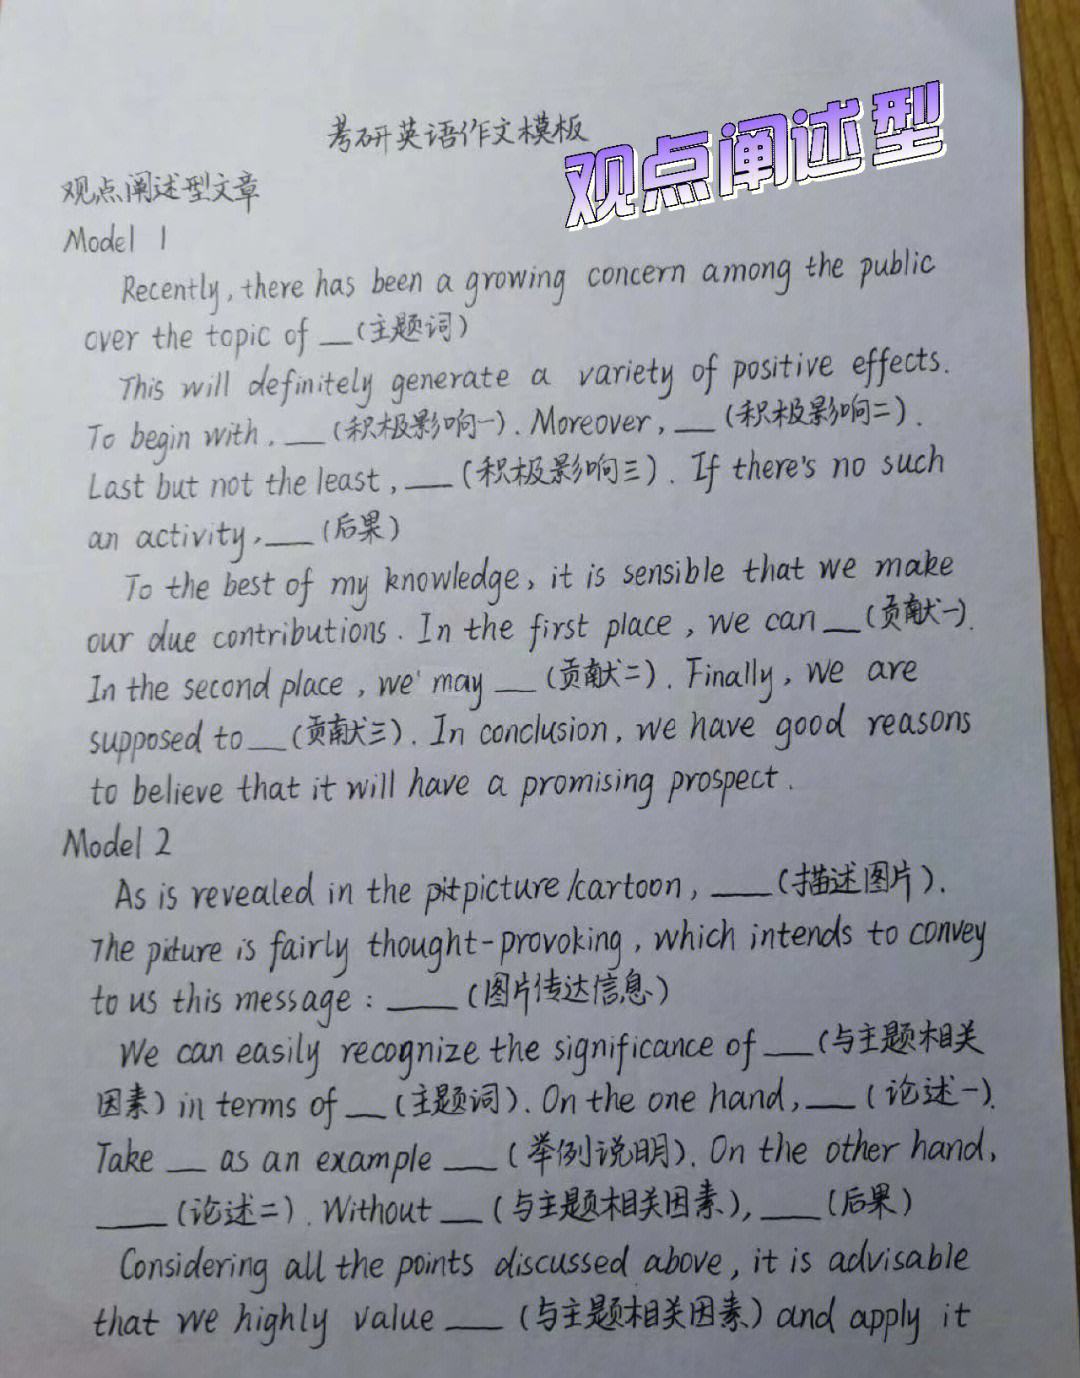 考研英语作文模板
观点阐述型
观点阐述型文章
Model 1
Recently, there has been a growing concern among the public
over the topic of __(主题词)
This will definitely generate a variety of positive effects.
To begin with, __(积极影响一). Moreover, __(积极影响二).
Last but not the least, __(积极影响三). If there's no such
an activity, __(后果)
To the best of my knowledge, it is sensible that we make
our due contributions. In the first place, we can __(贡献一).
In the second place, we may __(贡献二). Finally, we are
supposed to __(贡献三). In conclusion, we have good reasons
to believe that it will have a promising prospect.
Model 2
As is revealed in the picture/cartoon, __(描述图片).
The picture is fairly thought-provoking, which intends to convey
to us this message: __(图片传达信息)
We can easily recognize the significance of __(与主题相关
因素) in terms of __(主题词). On the one hand, __(论述一).
Take __ as an example __(举例说明). On the other hand,
__(论述二). Without __(与主题相关因素), __(后果)
Considering all the points discussed above, it is advisable
that we highly value __(与主题相关因素) and apply it